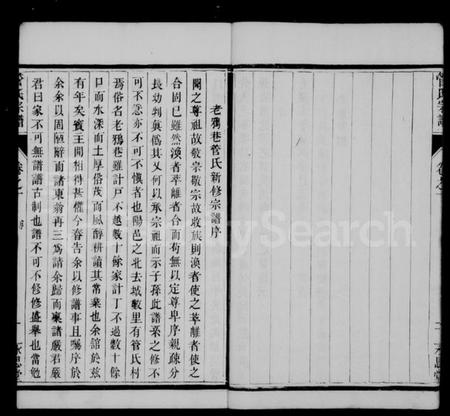 老鴉巷管氏新修宗譜序
聞之尊祖故敬宗敬宗故收族則渙者使之萃離者使之
合固已雖然渙者萃離者合而苟無以定尊卑序親疎分
長幼判真偽其又何以承宗祖而示子孫此譜系之修不
可不急亦不可不慎者也陽邑之北去城數里有管氏村
焉俗名老鴉巷雖計戶不越數十餘家計丁不過數十餘
口而水深而土厚俗茂而風醇耕讀其常業也余館於茲
有年矣賓主間相得甚懽今春告余以修譜事且囑序於
余余以固陋辭而諸東翁再三為請余歸而稟諸嚴君嚴
君曰家不可無譜譜古制也譜不可不修修盛舉也當勉
管氏宗譜
卷之一
序
一
管氏宗譜
卷之一